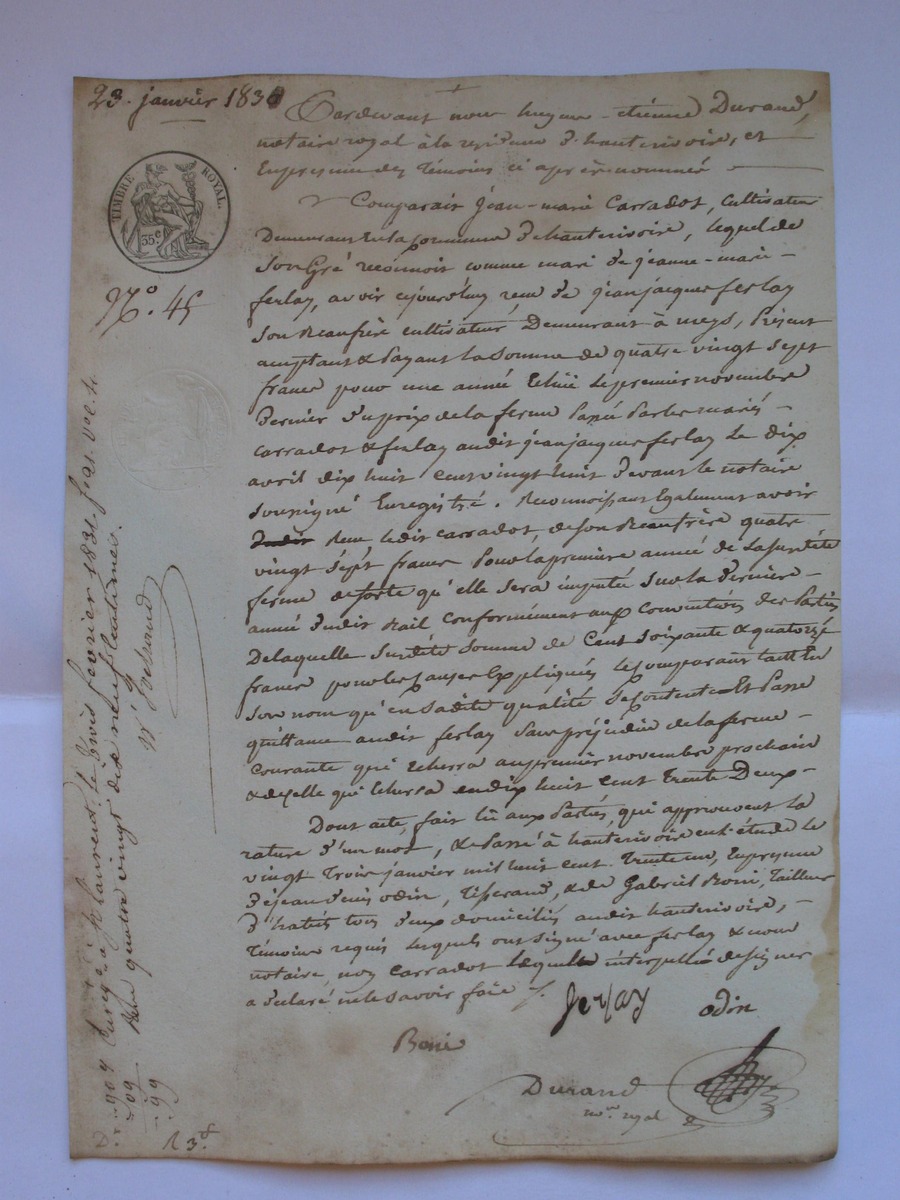 23. janvier 1831
Pardevant nous hugues-étienne Durand,
notaire royal à la residence d'hauterivoire, et
En presence des Témoins ci après nommés
Comparait Jean-marie Carradot, Cultivateur
Demeurant En la Commune d'hauterivoire, lequel de
Son Gré reconnoit comme mari de jeanne-marie
ferlay, avoir cejourd'huy recu de jeanjacques ferlay
Son Beaufrère cultivateur Demeurant à meys, Présent
acceptant & Payant la Somme de quatre vingt sept
francs pour une année Echüe le premier novembre
Dernier du prix de la ferme Passée Par les mariés
Carradot & ferlay audit jeanjacques ferlay le dix
avril dix huit cent vingt huit devant le notaire
soussigné Enregistré. Reconnoissant Egalement avoir
Recu ledit Carradot, de son Beaufrère quatre
vingt sept francs Pour la première année de la susdite
ferme de sorte qu'elle sera imputée sur la Dernière
année dudit Bail Conformément aux Conventions des Parties
De laquelle Susdite Somme de Cent Soixante & quatorze
francs pour les causes Expliquées le Comparant tant En
Son nom qu'en Sadite qualité Se Contente Et Passe
quittance audit ferlay Sans préjudice de la ferme
Courante qui Echerra au premier novembre prochain
& de celle qui Echerra en dix huit cent Trente Deux
Dont acte, fait lû aux Parties, qui approuvent la
rature d'un mot, & Passé à hauterivoire en l'étude le
vingt Trois janvier mil huit cent Trente un, En presence
de jean denis odin, Tisserand, & de Gabriel Boni, Tailleur
d'habits tous deux domiciliés audit hauterivoire,
Témoins requis lesquels ont signé avec ferlay & nous
notaire, non Carradot lequel interpellé de signer
a déclaré ne le savoir faire
ferlay
odin
Boni
Durand
nre royal
TIMBRE ROYAL.
35 c
No. 45
Enregé à St Laurent, le trois fevrier 1831, fo 91. Vo c. 4.
Recu quatre vingt dix neuf centimes.